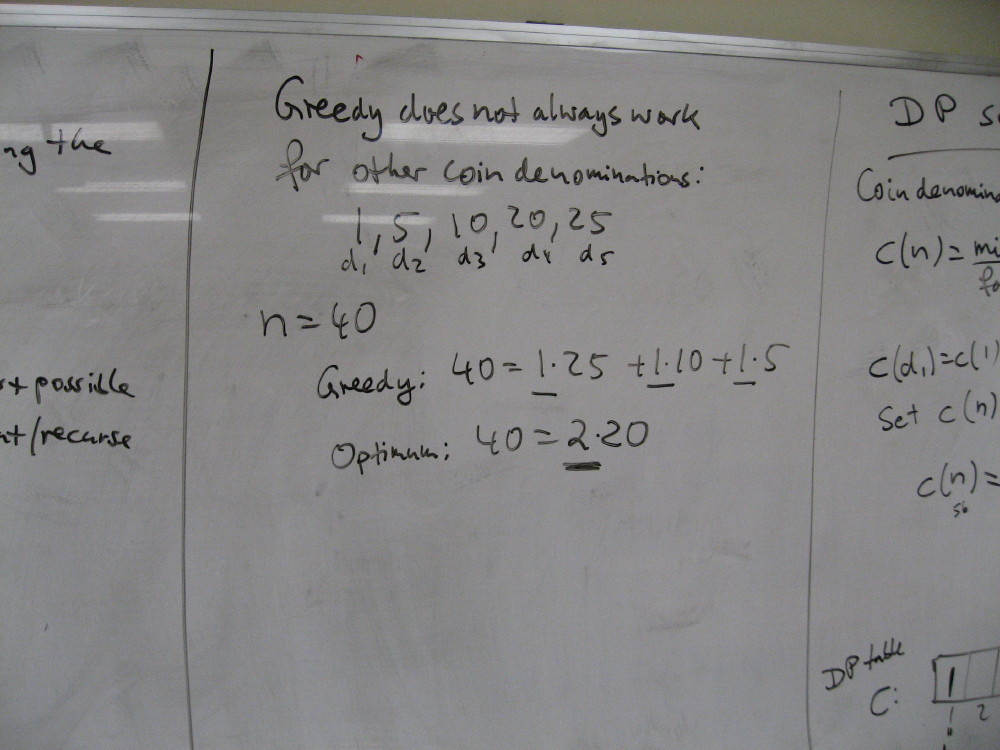 ng the
possible
/recurse
Greedy does not always work
for other coin denominations:
1, 5, 10, 20, 25
d1 d2 d3 d4 d5
n = 40
Greedy: 40 = 1·25 + 1·10 + 1·5
Optimum: 40 = 2·20
DP
Coin denomin
C(n) =
C(d1)=C(1)
Set C(n)
C(n) =
DP table
C: 1
1 2